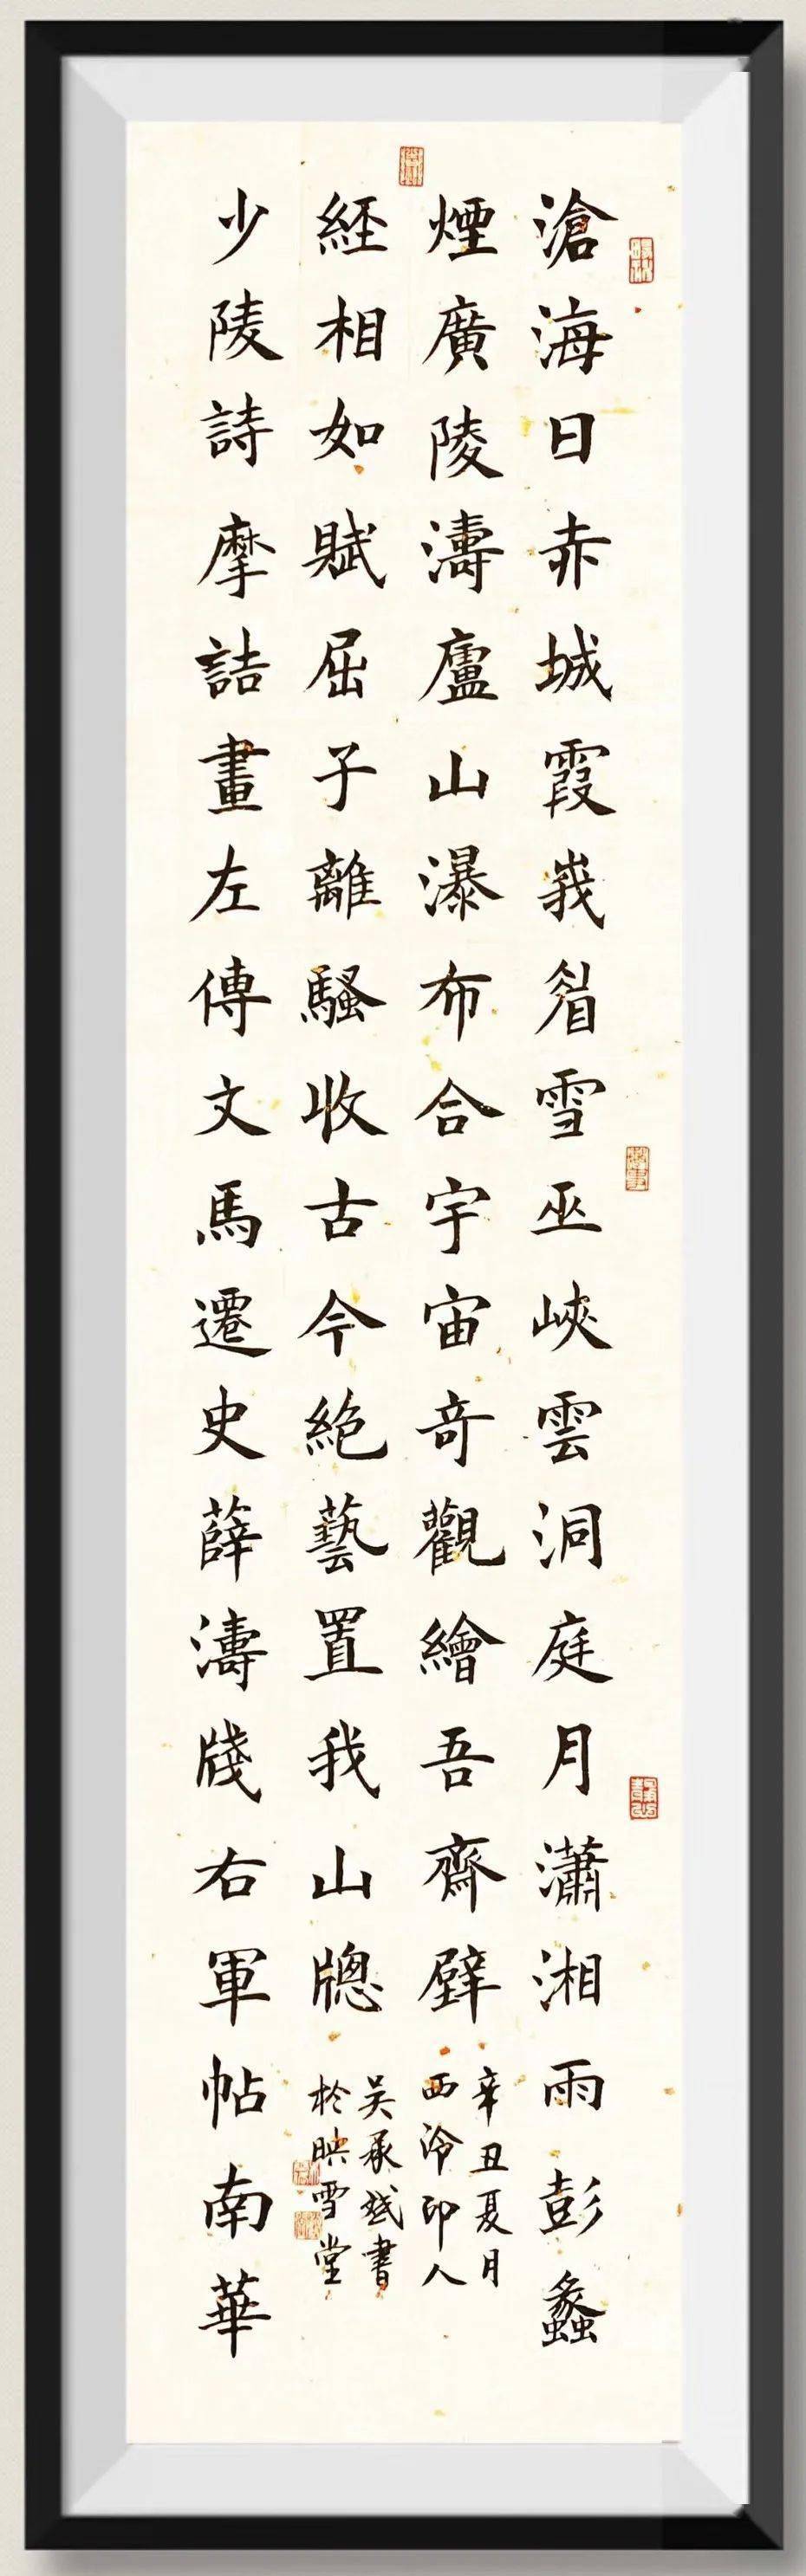 滄海日赤城霞峩眉雪巫峽雲洞庭月瀟湘雨彭蠡
煙廣陵濤廬山瀑布合宇宙奇觀繪吾齋壁
少陵詩摩詰畫左傳文馬遷史薛濤牋右軍帖南華
經相如賦屈子離騷收古今絕藝置我山牕
辛丑夏月
西泠印人
吴承斌書
於映雪堂